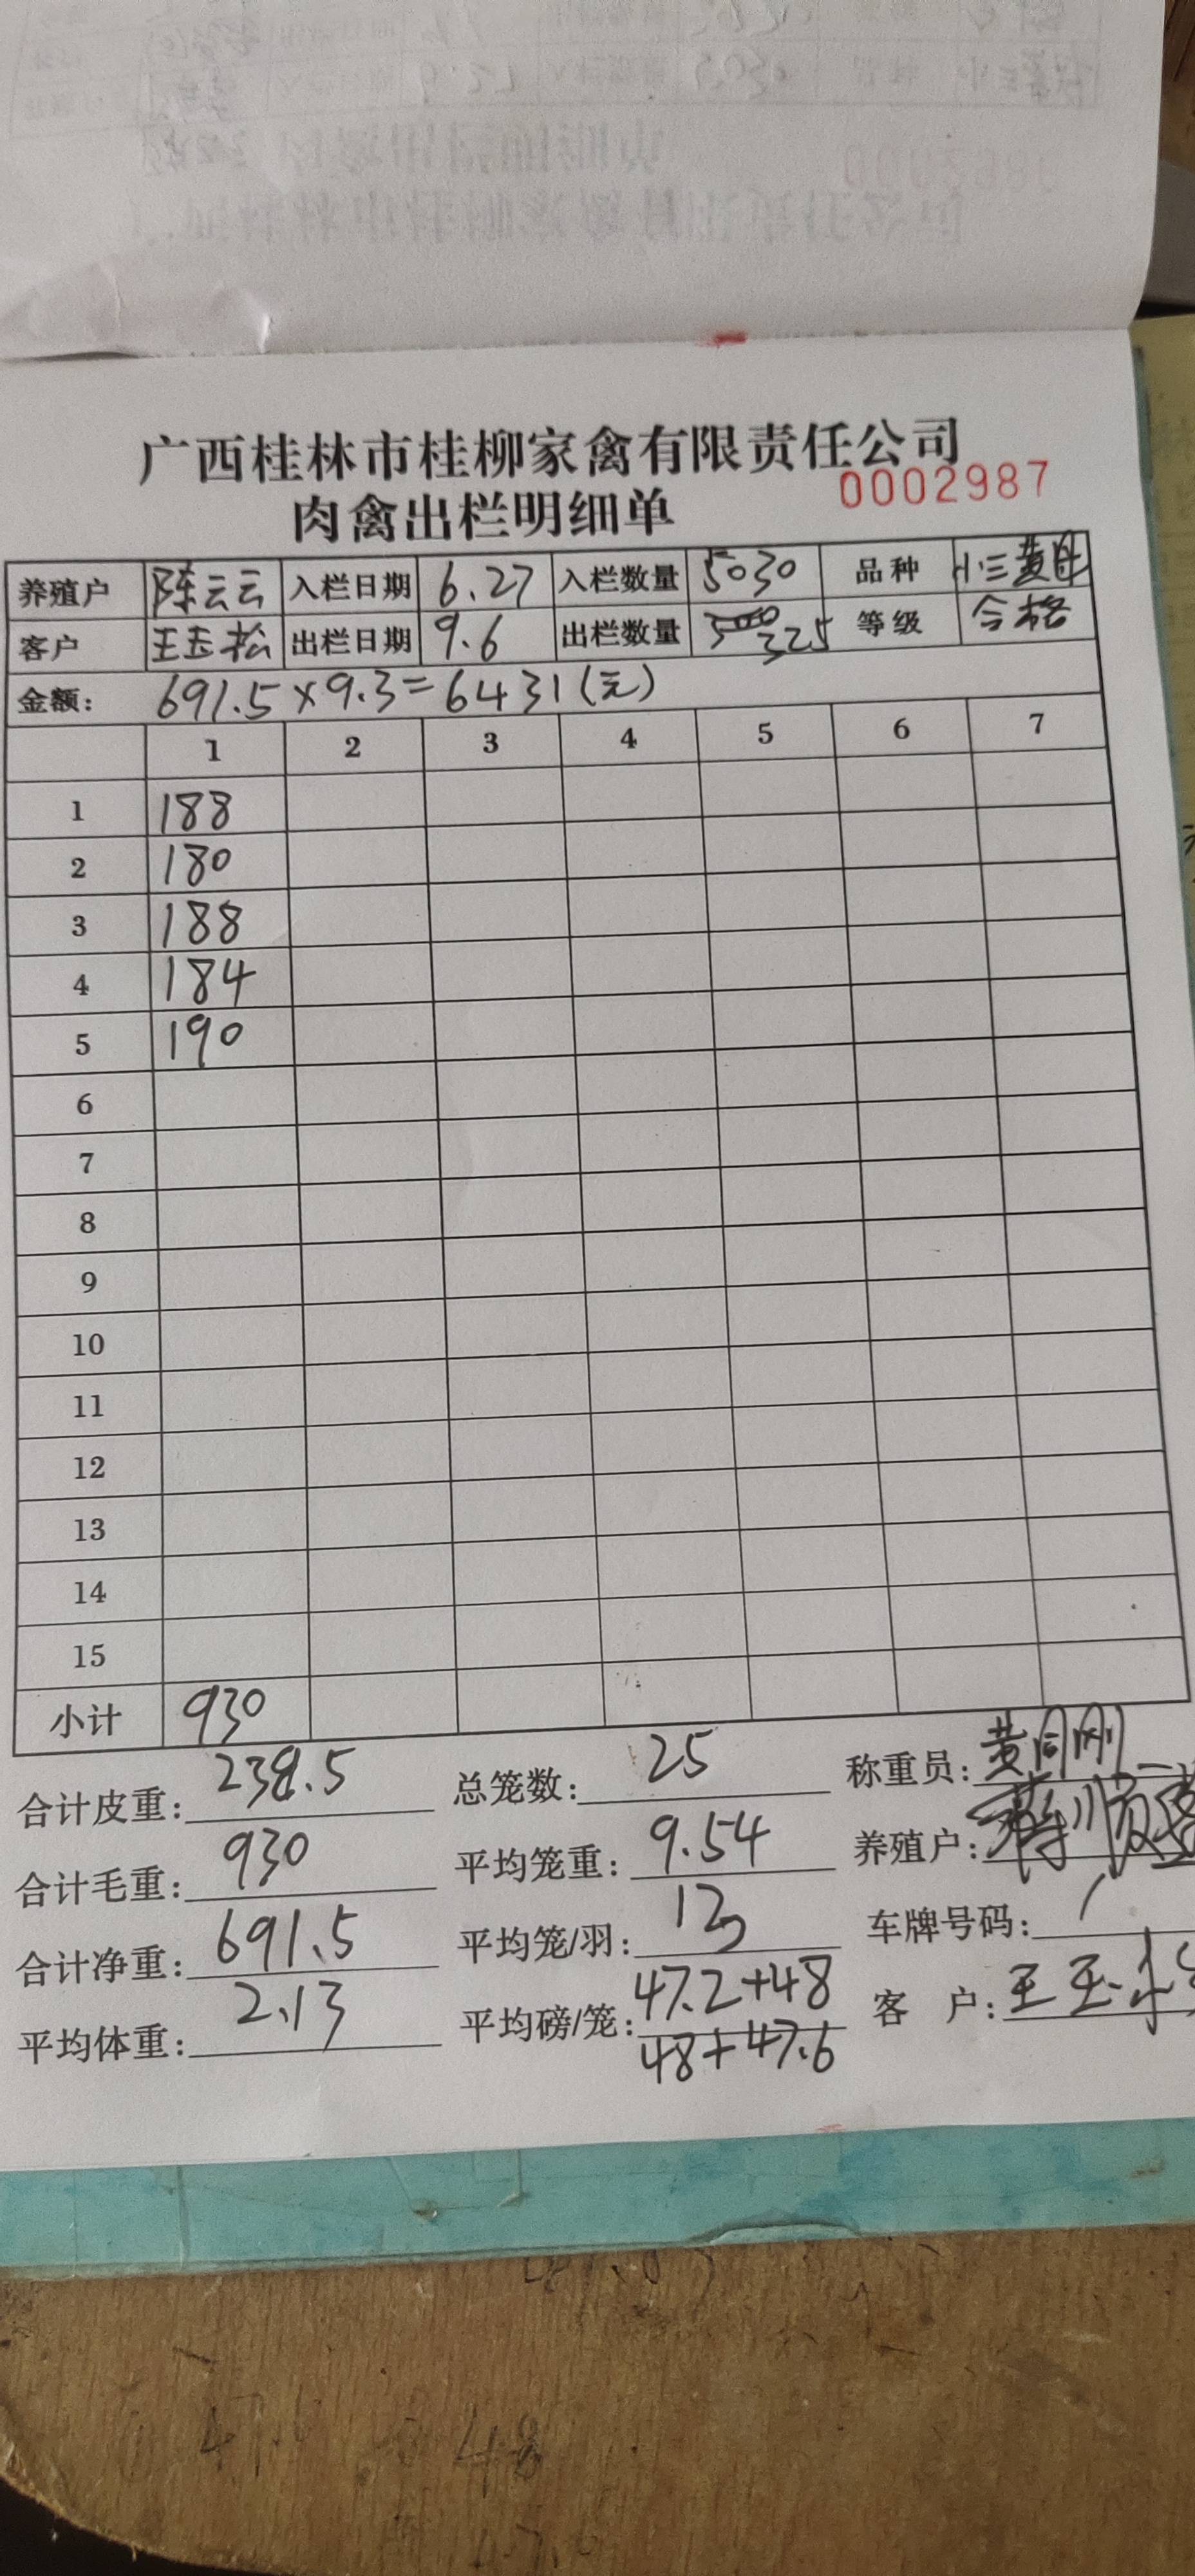 广西桂林市桂柳家禽有限责任公司
肉禽出栏明细单 0002987
养殖户 陈云云 入栏日期 6.27 入栏数量 5030 品种 小三黄母
客户 王玉松 出栏日期 9.6 出栏数量 325 等级 合格
金额： 691.5×9.3=6431(元)
1 2 3 4 5 6 7
1 188
2 180
3 188
4 184
5 190
6
7
8
9
10
11
12
13
14
15
小计 930
合计皮重： 238.5 总笼数： 25 称重员： 黄同刚
合计毛重： 930 平均笼重： 9.54 养殖户：
合计净重： 691.5 平均笼/羽： 13 车牌号码： /
平均体重： 2.13 平均磅/笼： 47.2+48 客 户： 王玉松
48+47.6